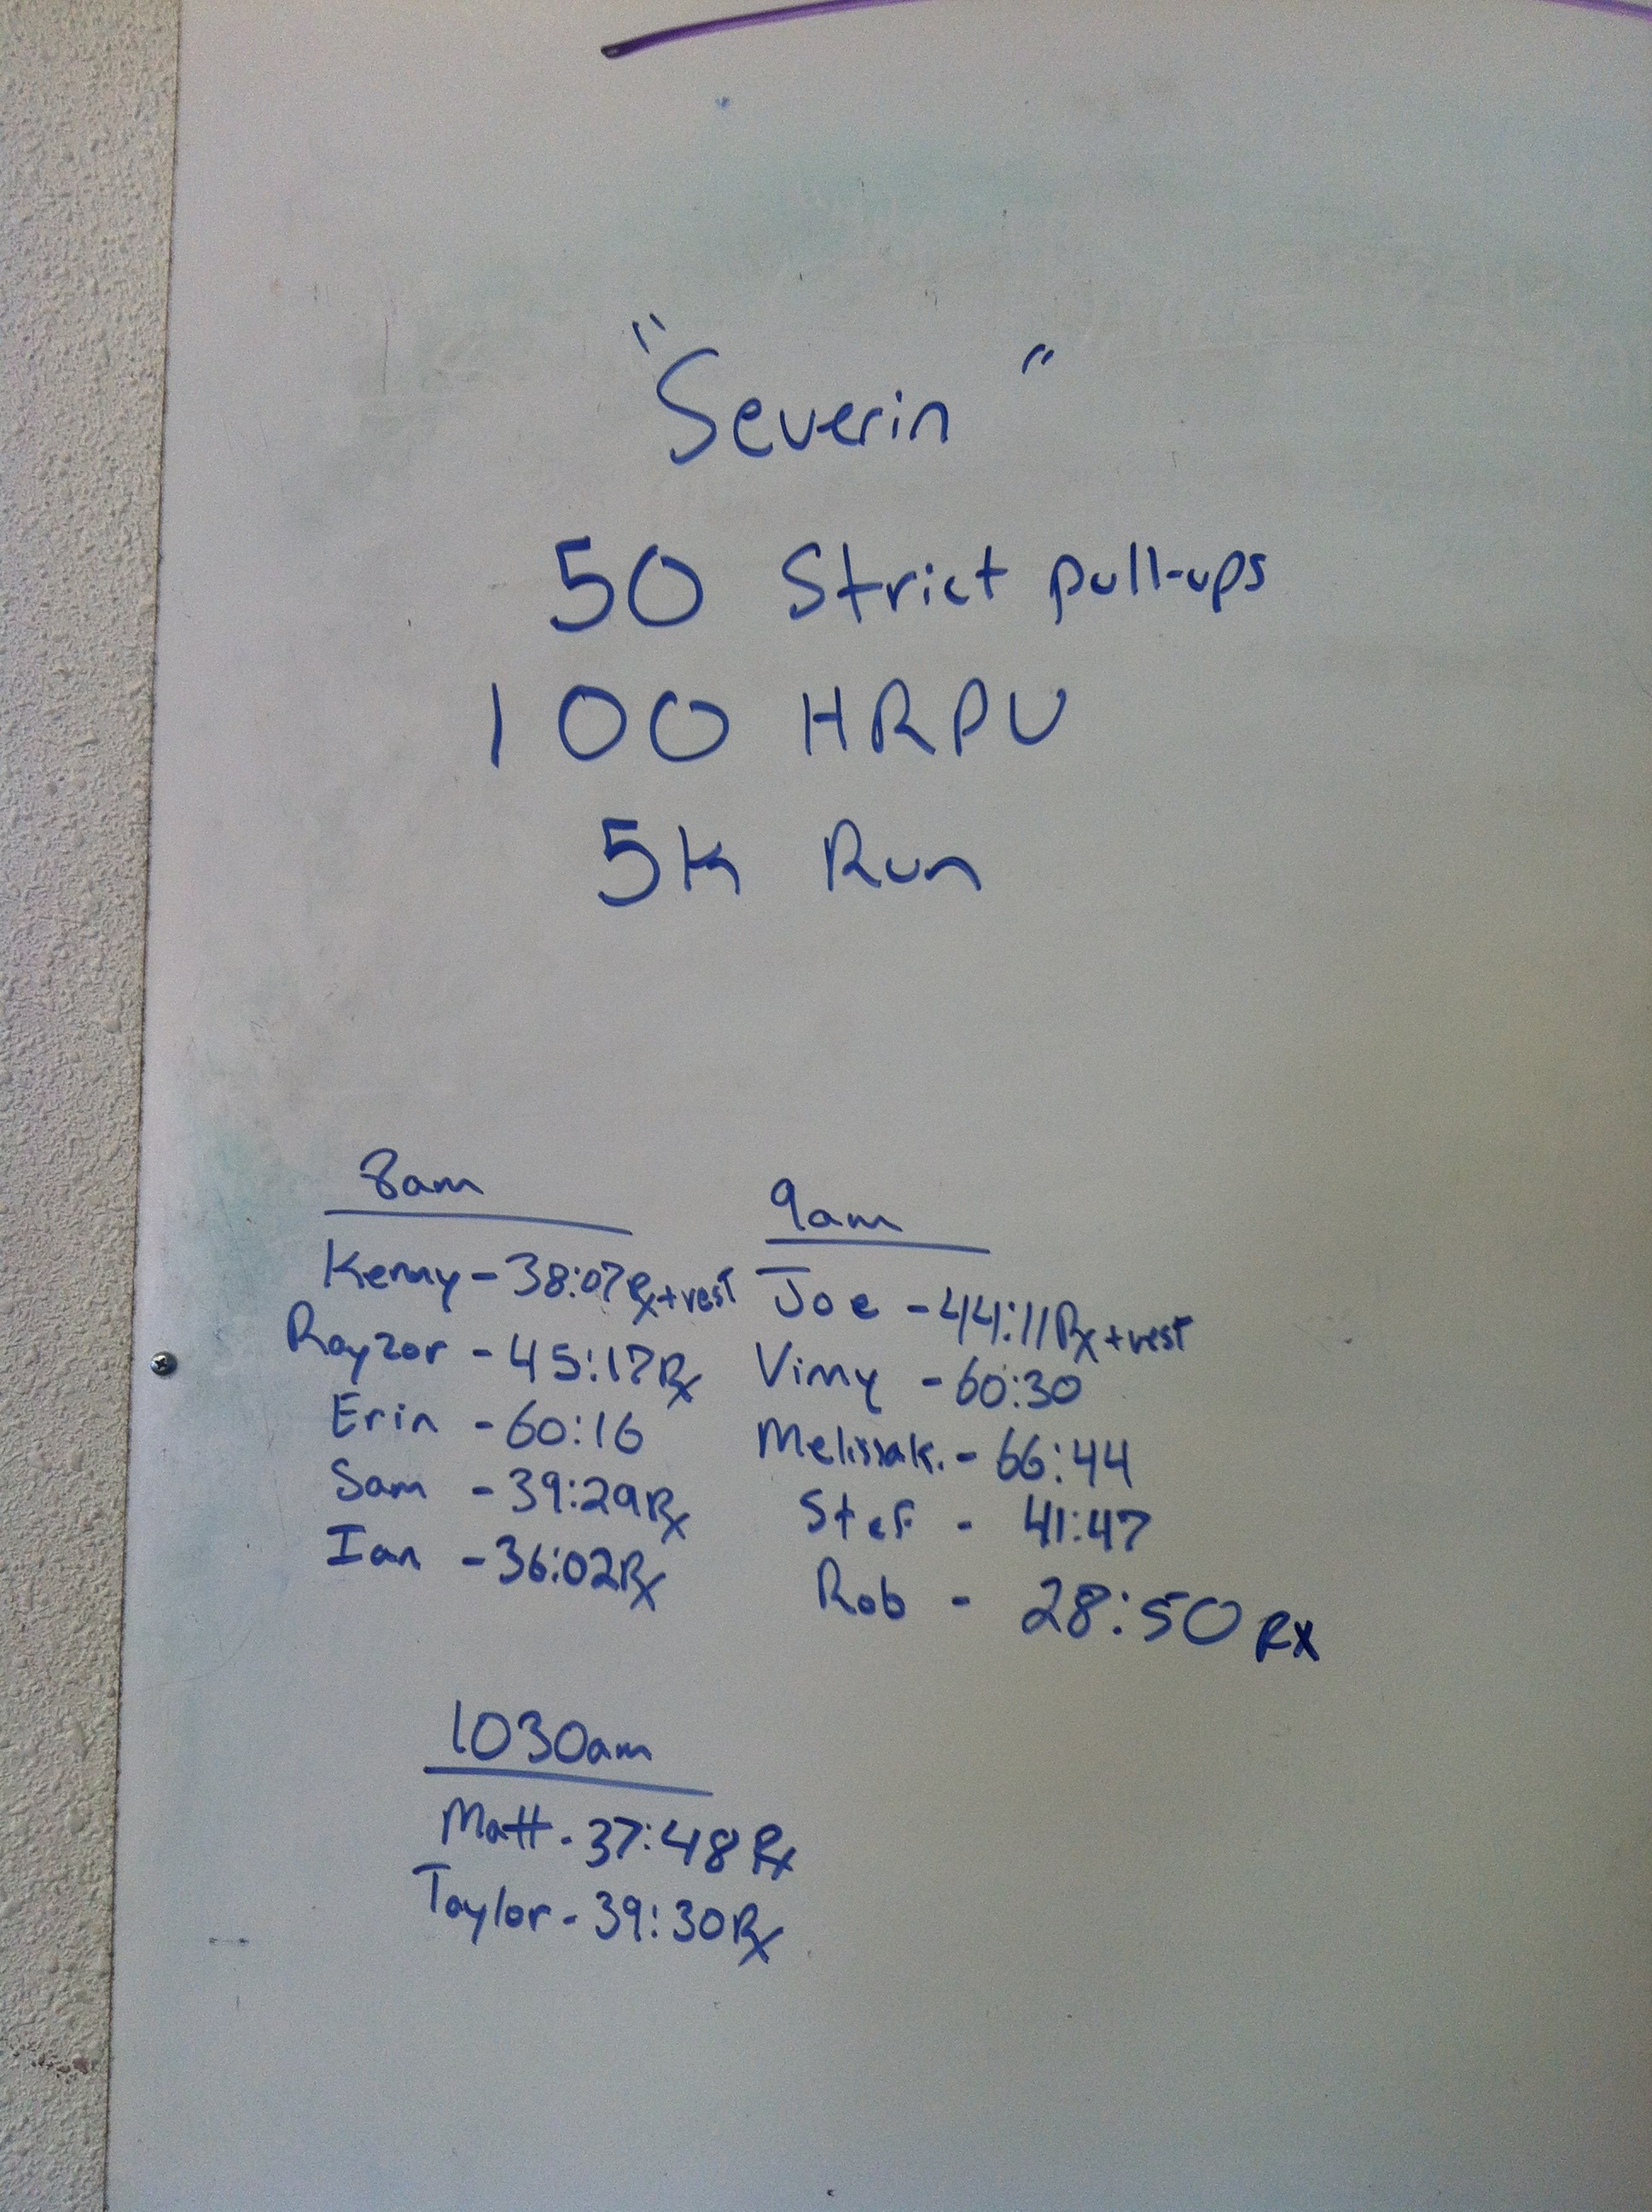 "Severin"
50 Strict pull-ups
100 HRPU
5k Run
8am
Kenny - 38:07 Rx + vest
Rayzor - 45:17 Rx
Erin - 60:16
Sam - 39:29 Rx
Ian - 36:02 Rx
9am
Joe - 44:11 Rx + vest
Vinny - 60:30
Melissa K. - 66:44
Stef - 41:47
Rob - 28:50 Rx
1030am
Matt - 37:48 Rx
Taylor - 39:30 Rx